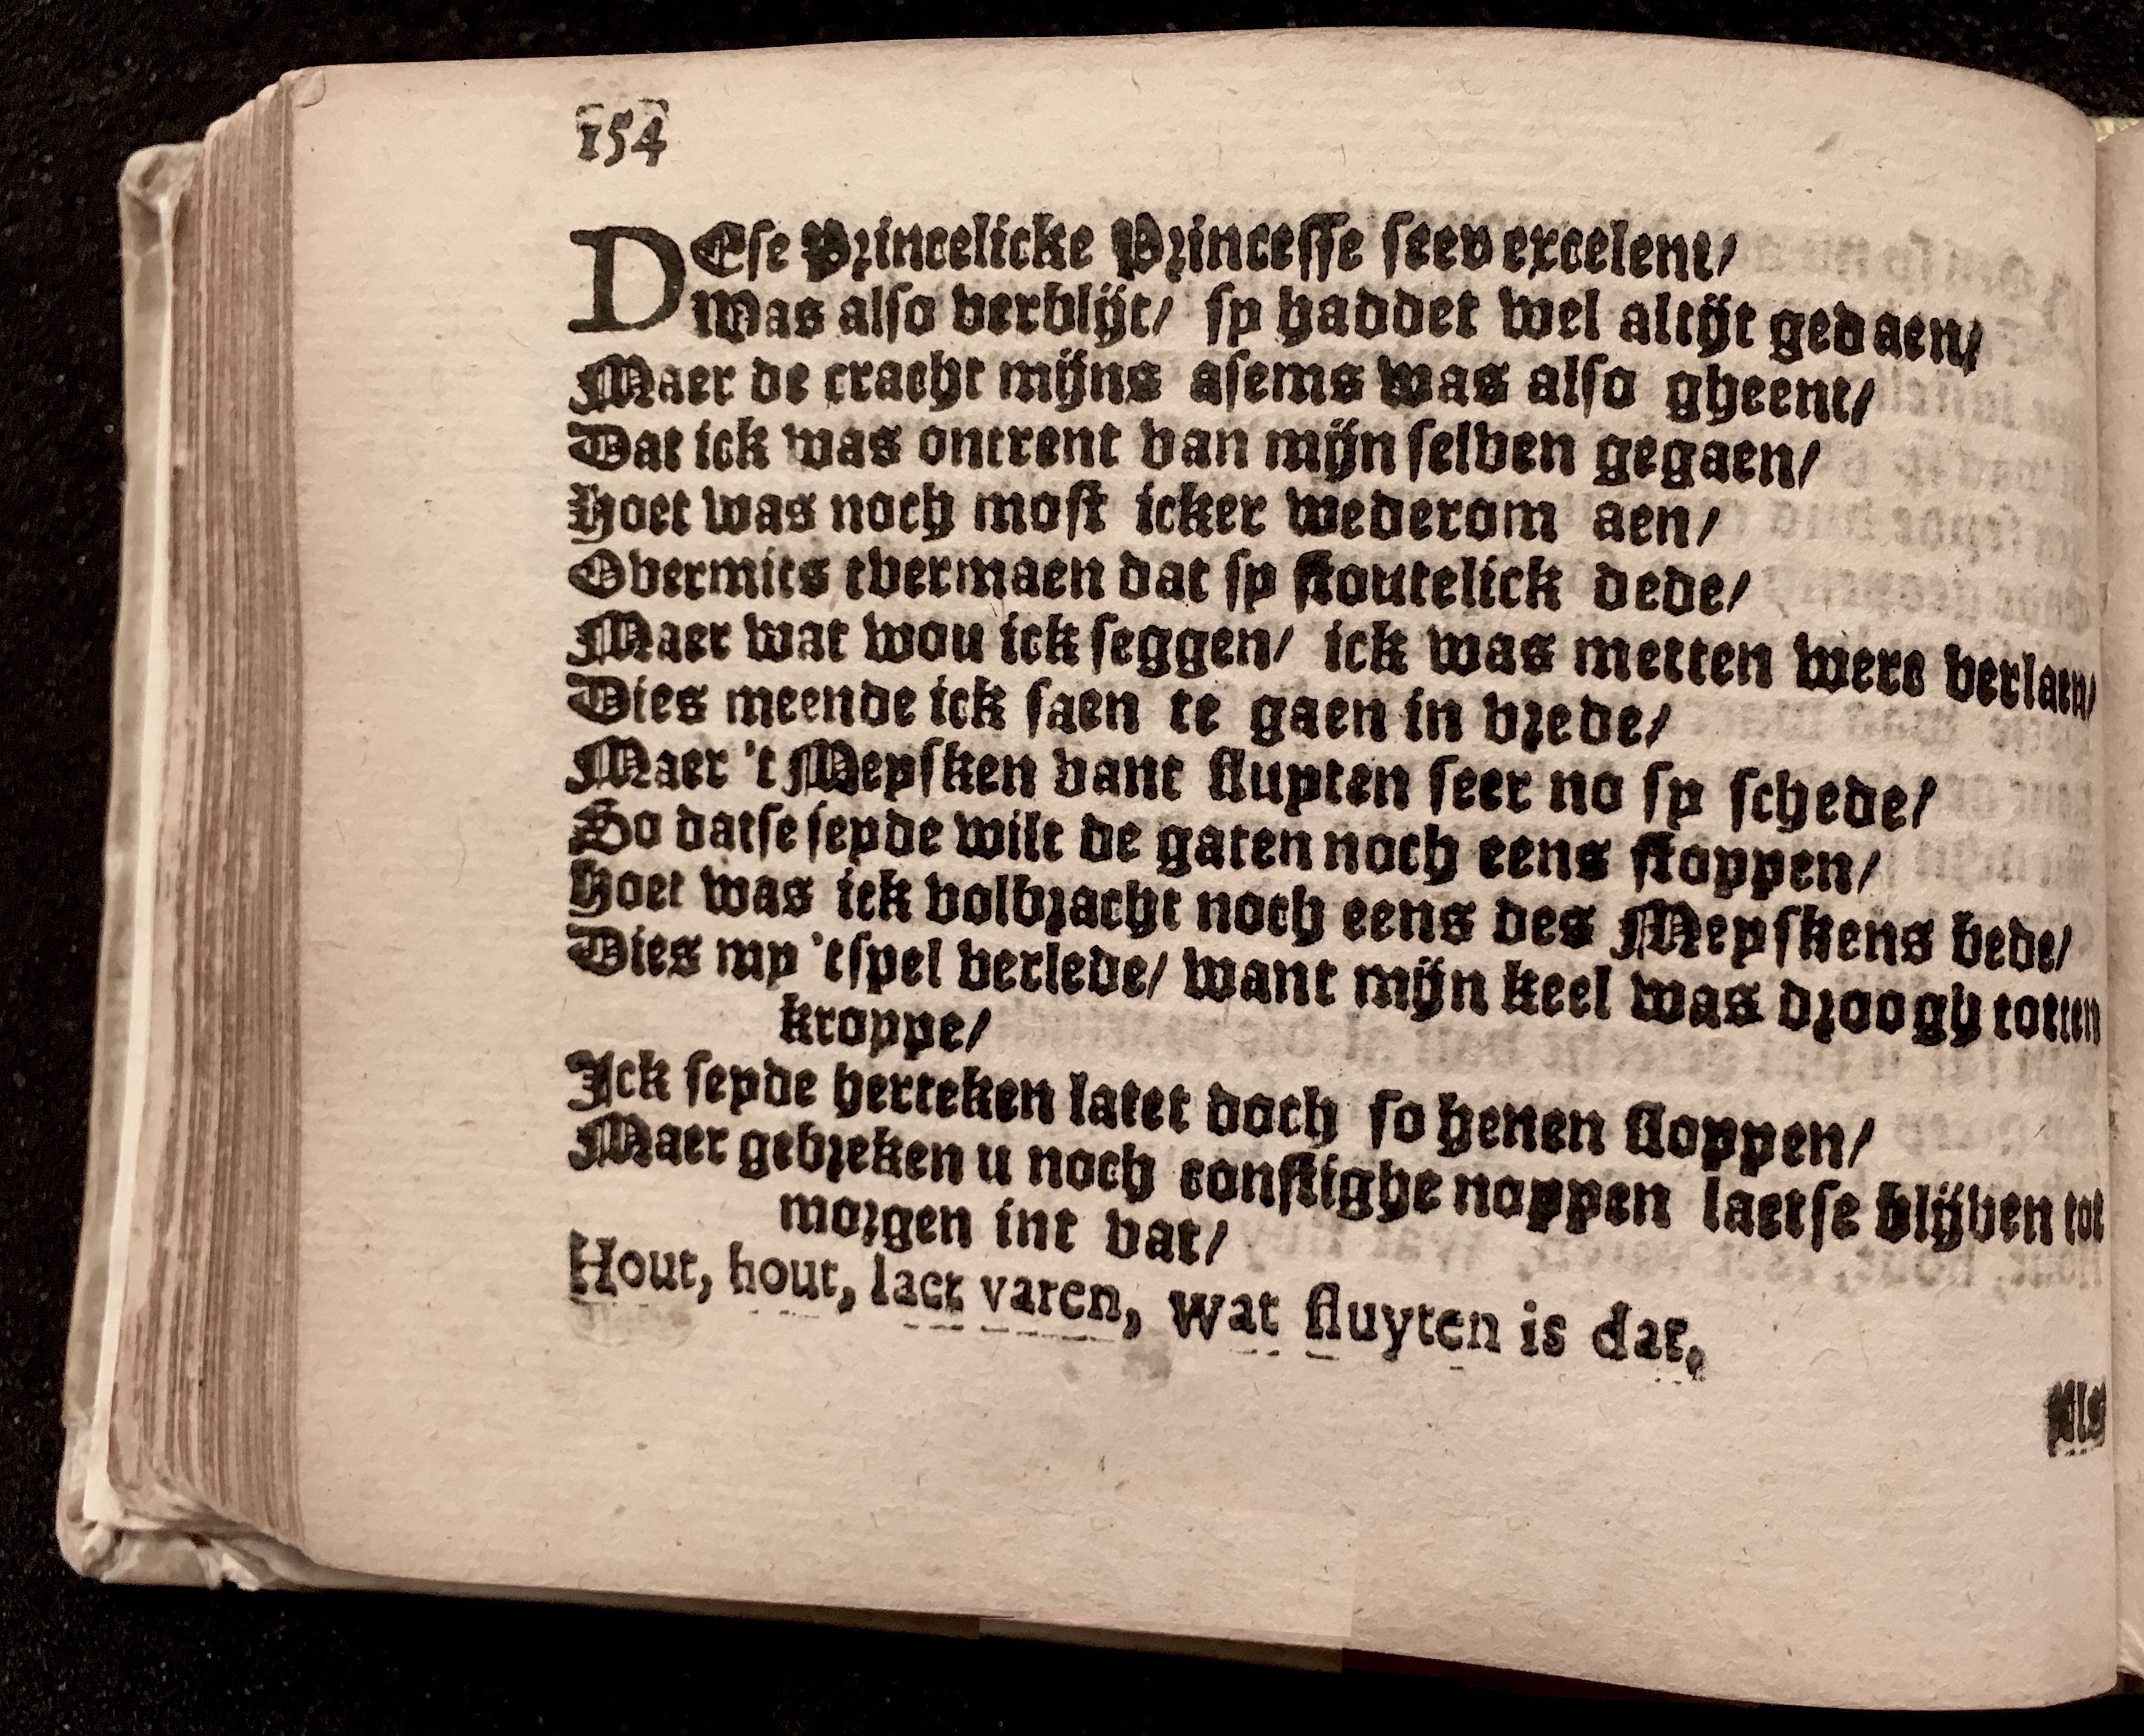 154
DEse Princelicke Princesse seer excelent/
Was also verblijt/ sy haddet wel altijt gedaen/
Maer de cracht mijns asems was also gheent/
Dat ick was ontrent van mijn selven gegaen/
Hoet was noch most icker wederom aen/
Overmits tvermaen dat sy stoutelick dede/
Maer wat wou ick seggen/ ick was metten werc verlaen/
Dies meende ick saen te gaen in vrede/
Maer 't Meysken vant fluyten seer no sy schede/
So datse seyde wilt de gaten noch eens stoppen/
Hoet was ick volbracht noch eens des Meyskens bede/
Dies my 'tspel verlede/ want mijn keel was droogh totten
kroppe/
Ick seyde herteken latet doch so henen sloppen/
Maer gebreken u noch constighe noppen laetse blijven tot
morgen int vat/
Hout, hout, laet varen, wat fluyten is dat,
Als